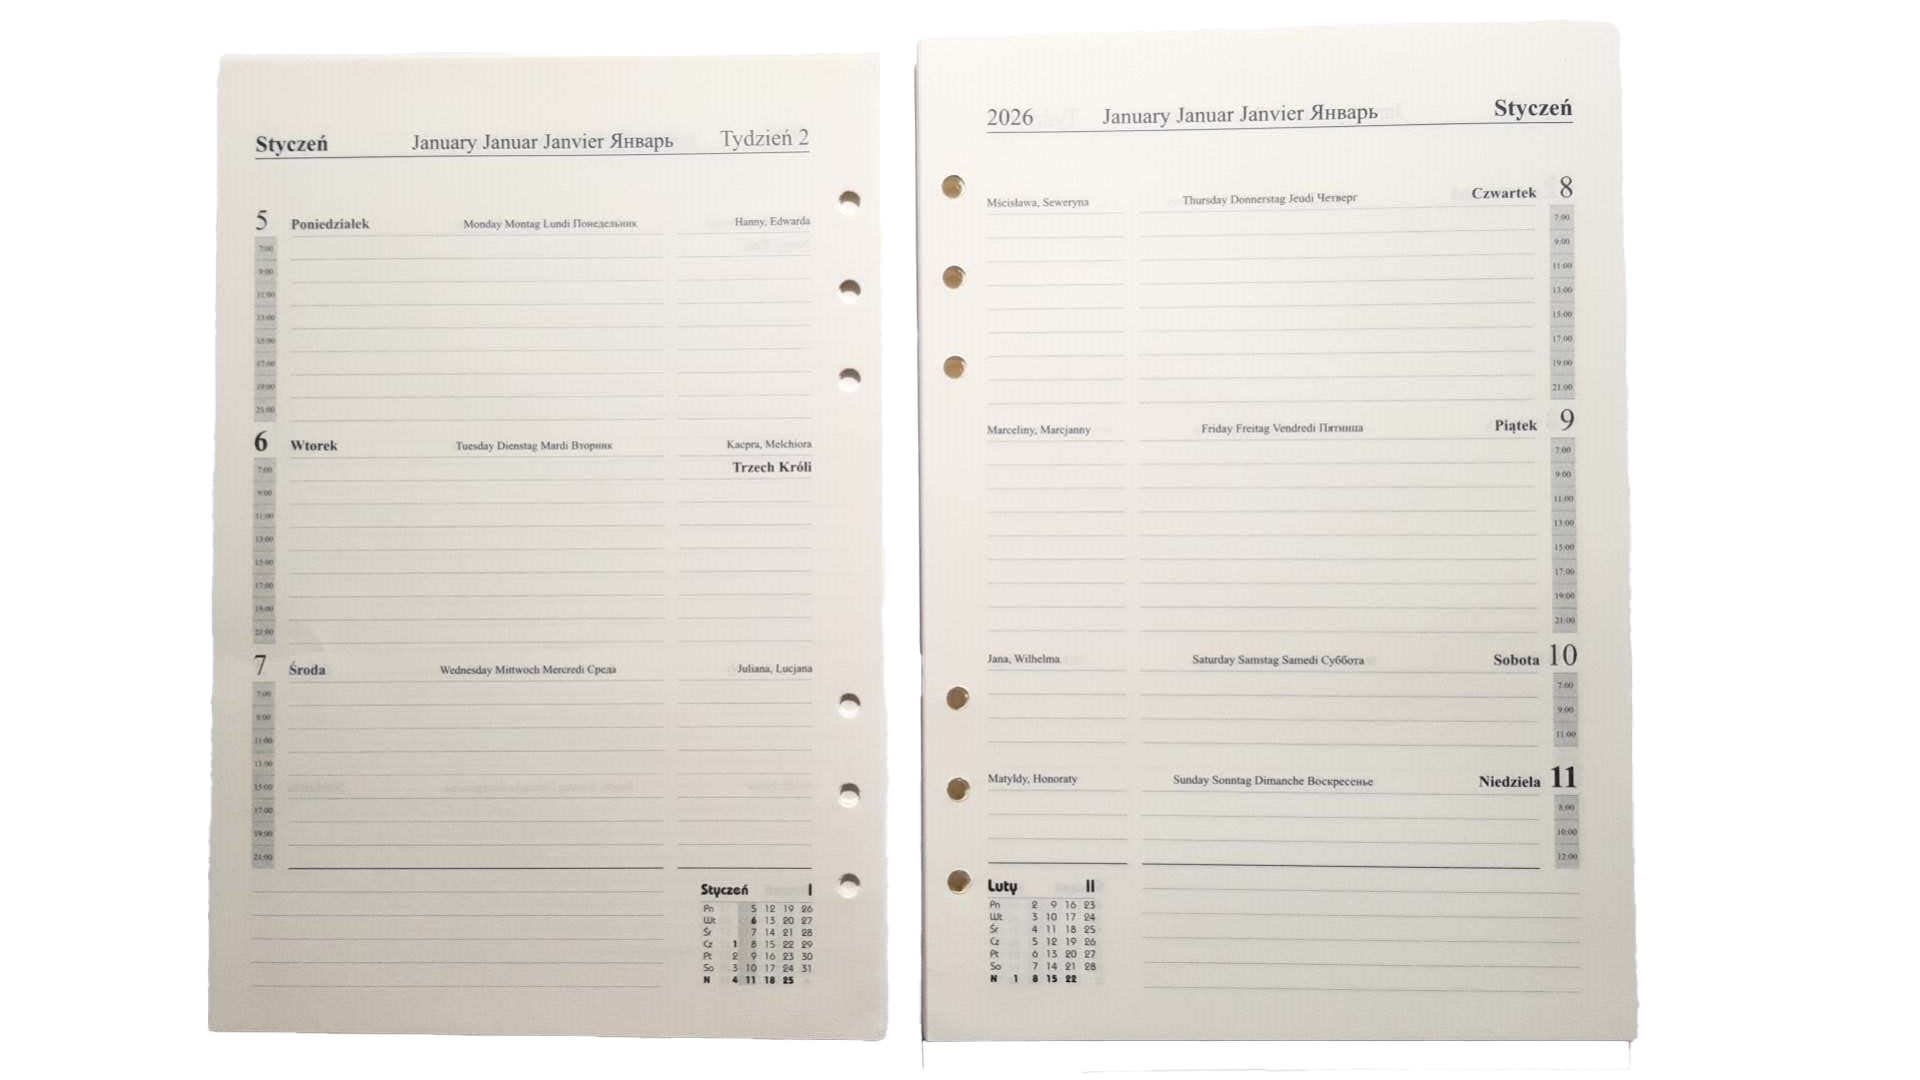 Styczeń January Januar Janvier Январь Tydzień 2
5 Poniedziałek Monday Montag Lundi Понедельник Hanny, Edwarda
7:00
9:00
11:00
13:00
15:00
17:00
19:00
21:00
6 Wtorek Tuesday Dienstag Mardi Вторник Kacpra, Melchiora
Trzech Króli
7:00
9:00
11:00
13:00
15:00
17:00
19:00
21:00
7 Środa Wednesday Mittwoch Mercredi Среда Juliana, Lucjana
7:00
9:00
11:00
13:00
15:00
17:00
19:00
21:00
Styczeń I
Pn 5 12 19 26
Wt 6 13 20 27
Śr 7 14 21 28
Cz 1 8 15 22 29
Pt 2 9 16 23 30
So 3 10 17 24 31
N 4 11 18 25
2026 January Januar Janvier Январь Styczeń
Mścisława, Seweryna Thursday Donnerstag Jeudi Четверг Czwartek 8
7:00
9:00
11:00
13:00
15:00
17:00
19:00
21:00
Marceliny, Marcjanny Friday Freitag Vendredi Пятница Piątek 9
7:00
9:00
11:00
13:00
15:00
17:00
19:00
21:00
Jana, Wilhelma Saturday Samstag Samedi Суббота Sobota 10
7:00
9:00
11:00
Matyldy, Honoraty Sunday Sonntag Dimanche Воскресенье Niedziela 11
8:00
10:00
12:00
Luty II
Pn 2 9 16 23
Wt 3 10 17 24
Śr 4 11 18 25
Cz 5 12 19 26
Pt 6 13 20 27
So 7 14 21 28
N 1 8 15 22